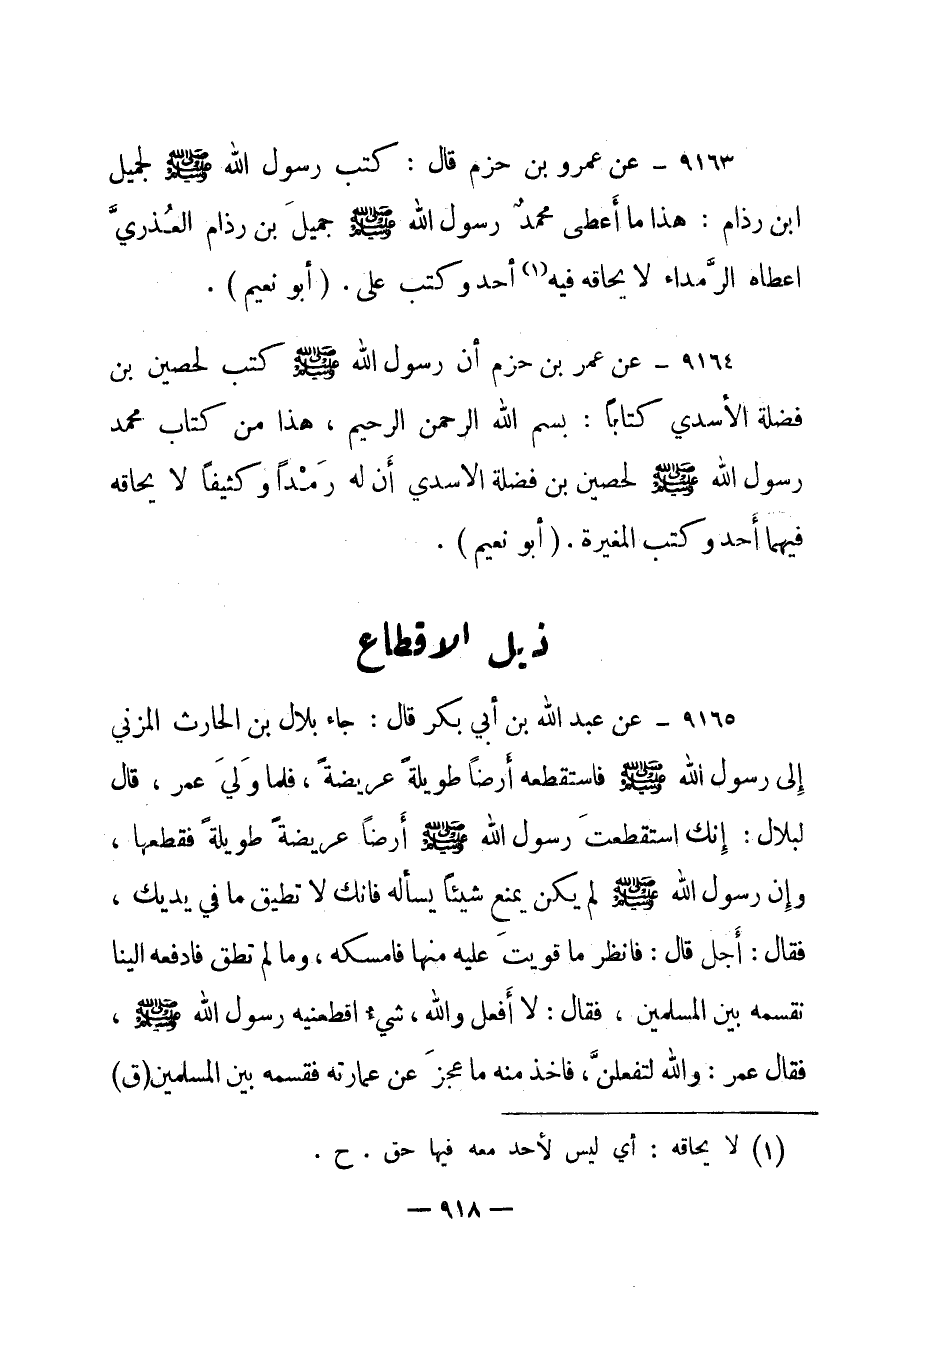 ٩١٦٣ ـ عن عمرو بن حزم قال : كتب رسول الله ﷺ لجميل
ابن رذام : هذا ما أَعطى محمدٌ رسول الله ﷺ جميلَ بن رذام العُذريَّ
اعطاه الرَّمداء لا يحاقه فيه(١) أحد وكتب على . ( أبو نعيم ) .
٩١٦٤ ـ عن عمر بن حزم أن رسول الله ﷺ كتب لحصين بن
فضلة الأسدي كتاباً : بسم الله الرحمن الرحيم ، هذا من كتاب محمد
رسول الله ﷺ لحصين بن فضلة الاسدي أَن له رَمْداً وكثيفاً لا يحاقه
فيهما أَحد وكتب المغيرة . ( أبو نعيم ) .
ذيل الاقطاع
٩١٦٥ ـ عن عبد الله بن أبي بكر قال : جاء بلال بن الحارث المزني
إلى رسول الله ﷺ فاستقطعه أَرضاً طويلةً عريضةً ، فلما وَليَ عمر ، قال
لبلال : إنك استقطعتَ رسول الله ﷺ أَرضاً عريضةً طويلةً فقطعها ،
وإن رسول الله ﷺ لم يكن يمنع شيئاً يسأله فانك لا تطيق ما في يديك ،
فقال : أَجل قال : فانظر ما قويتَ عليه منها فامسكه ، وما لم تطق فادفعه الينا
نقسمه بين المسلمين ، فقال : لا أَفعل والله ، شيء اقطعنيه رسول الله ﷺ ،
فقال عمر : والله لتفعلنَّ ، فاخذ منه ما عجزَ عن عمارته فقسمه بين المسلمين(ق)
(١) لا يحاقه : أي ليس لأحد معه فيها حق . ح .
— ٩١٨ —